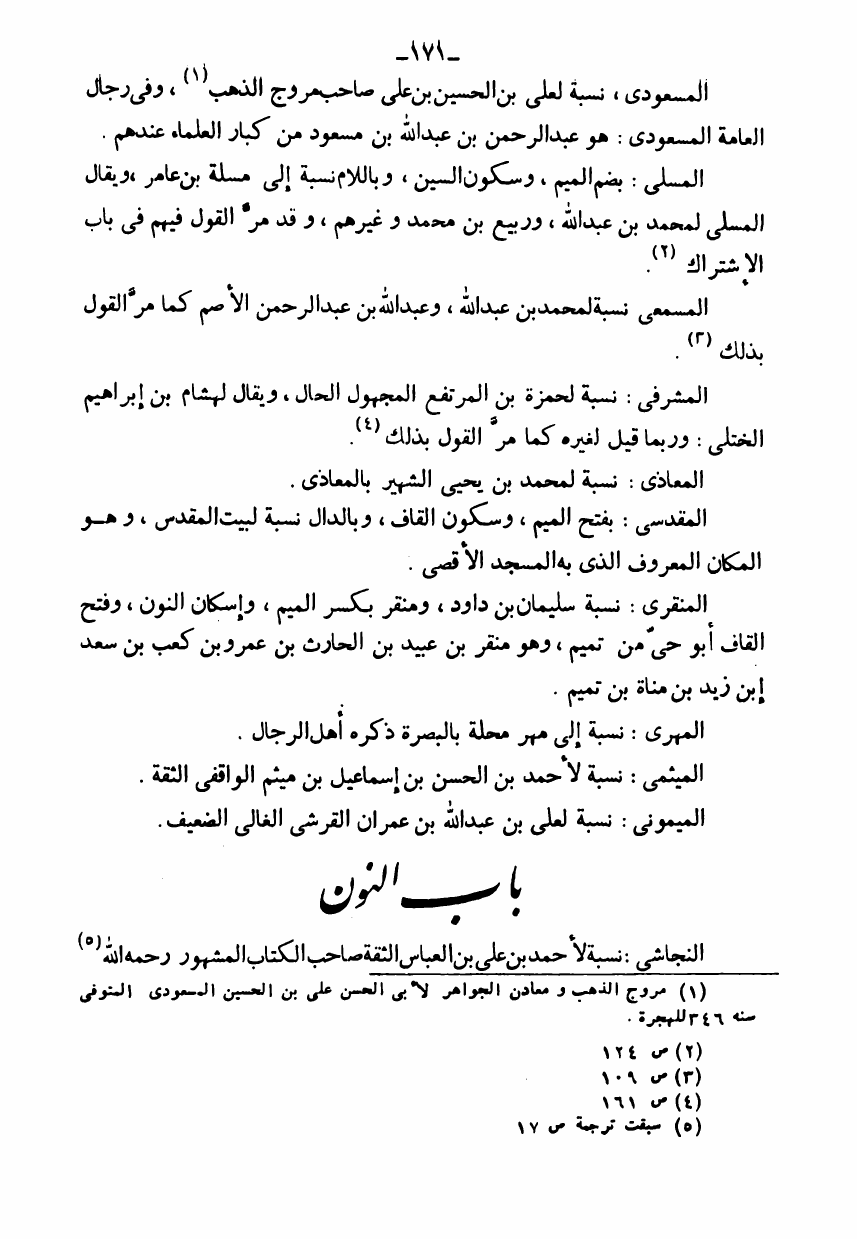 -١٧١-
المسعودى ، نسبة لعلى بن الحسين بن على صاحب مروج الذهب (١) ، وفى رجال
العامة المسعودى : هو عبدالرحمن بن عبدالله بن مسعود من كبار العلماء عندهم .
المسلى : بضم الميم ، وسكون السين ، وباللام نسبة إلى مسلة بن عامر ، ويقال
المسلى لمحمد بن عبدالله ، وربيع بن محمد و غيرهم ، و قد مرَّ القول فيهم فى باب
الإشتراك (٢) .
المسمعى نسبة لمحمد بن عبدالله ، وعبدالله بن عبدالرحمن الأصم كما مرَّ القول
بذلك (٣) .
المشرفى : نسبة لحمزة بن المرتفع المجهول الحال ، ويقال لهشام بن إبراهيم
الختلى : وربما قيل لغيره كما مرَّ القول بذلك (٤) .
المعاذى : نسبة لمحمد بن يحيى الشهير بالمعاذى .
المقدسى : بفتح الميم ، وسكون القاف ، وبالدال نسبة لبيت المقدس ، و هـو
المكان المعروف الذى به المسجد الأقصى .
المنقرى : نسبة سليمان بن داود ، ومنقر بكسر الميم ، وإسكان النون ، وفتح
القاف أبو حىّ من تميم ، وهو منقر بن عبيد بن الحارث بن عمرو بن كعب بن سعد
إبن زيد بن مناة بن تميم .
المهرى : نسبة إلى مهر محلة بالبصرة ذكره أهل الرجال .
الميثمى : نسبة لأحمد بن الحسن بن إسماعيل بن ميثم الواقفى الثقة .
الميمونى : نسبة لعلى بن عبدالله بن عمران القرشى الغالى الضعيف .
باب النون
النجاشى : نسبة لأحمد بن على بن العباس الثقة صاحب الكتاب المشهور رحمه الله (٥)
(١) مروج الذهب و معادن الجواهر لأبى الحسن على بن الحسين المسعودى المتوفى
سنه ٣٤٦ للهجرة .
(٢) ص ١٢٤
(٣) ص ١٠٩
(٤) ص ١٦١
(٥) سبقت ترجمة ص ١٧